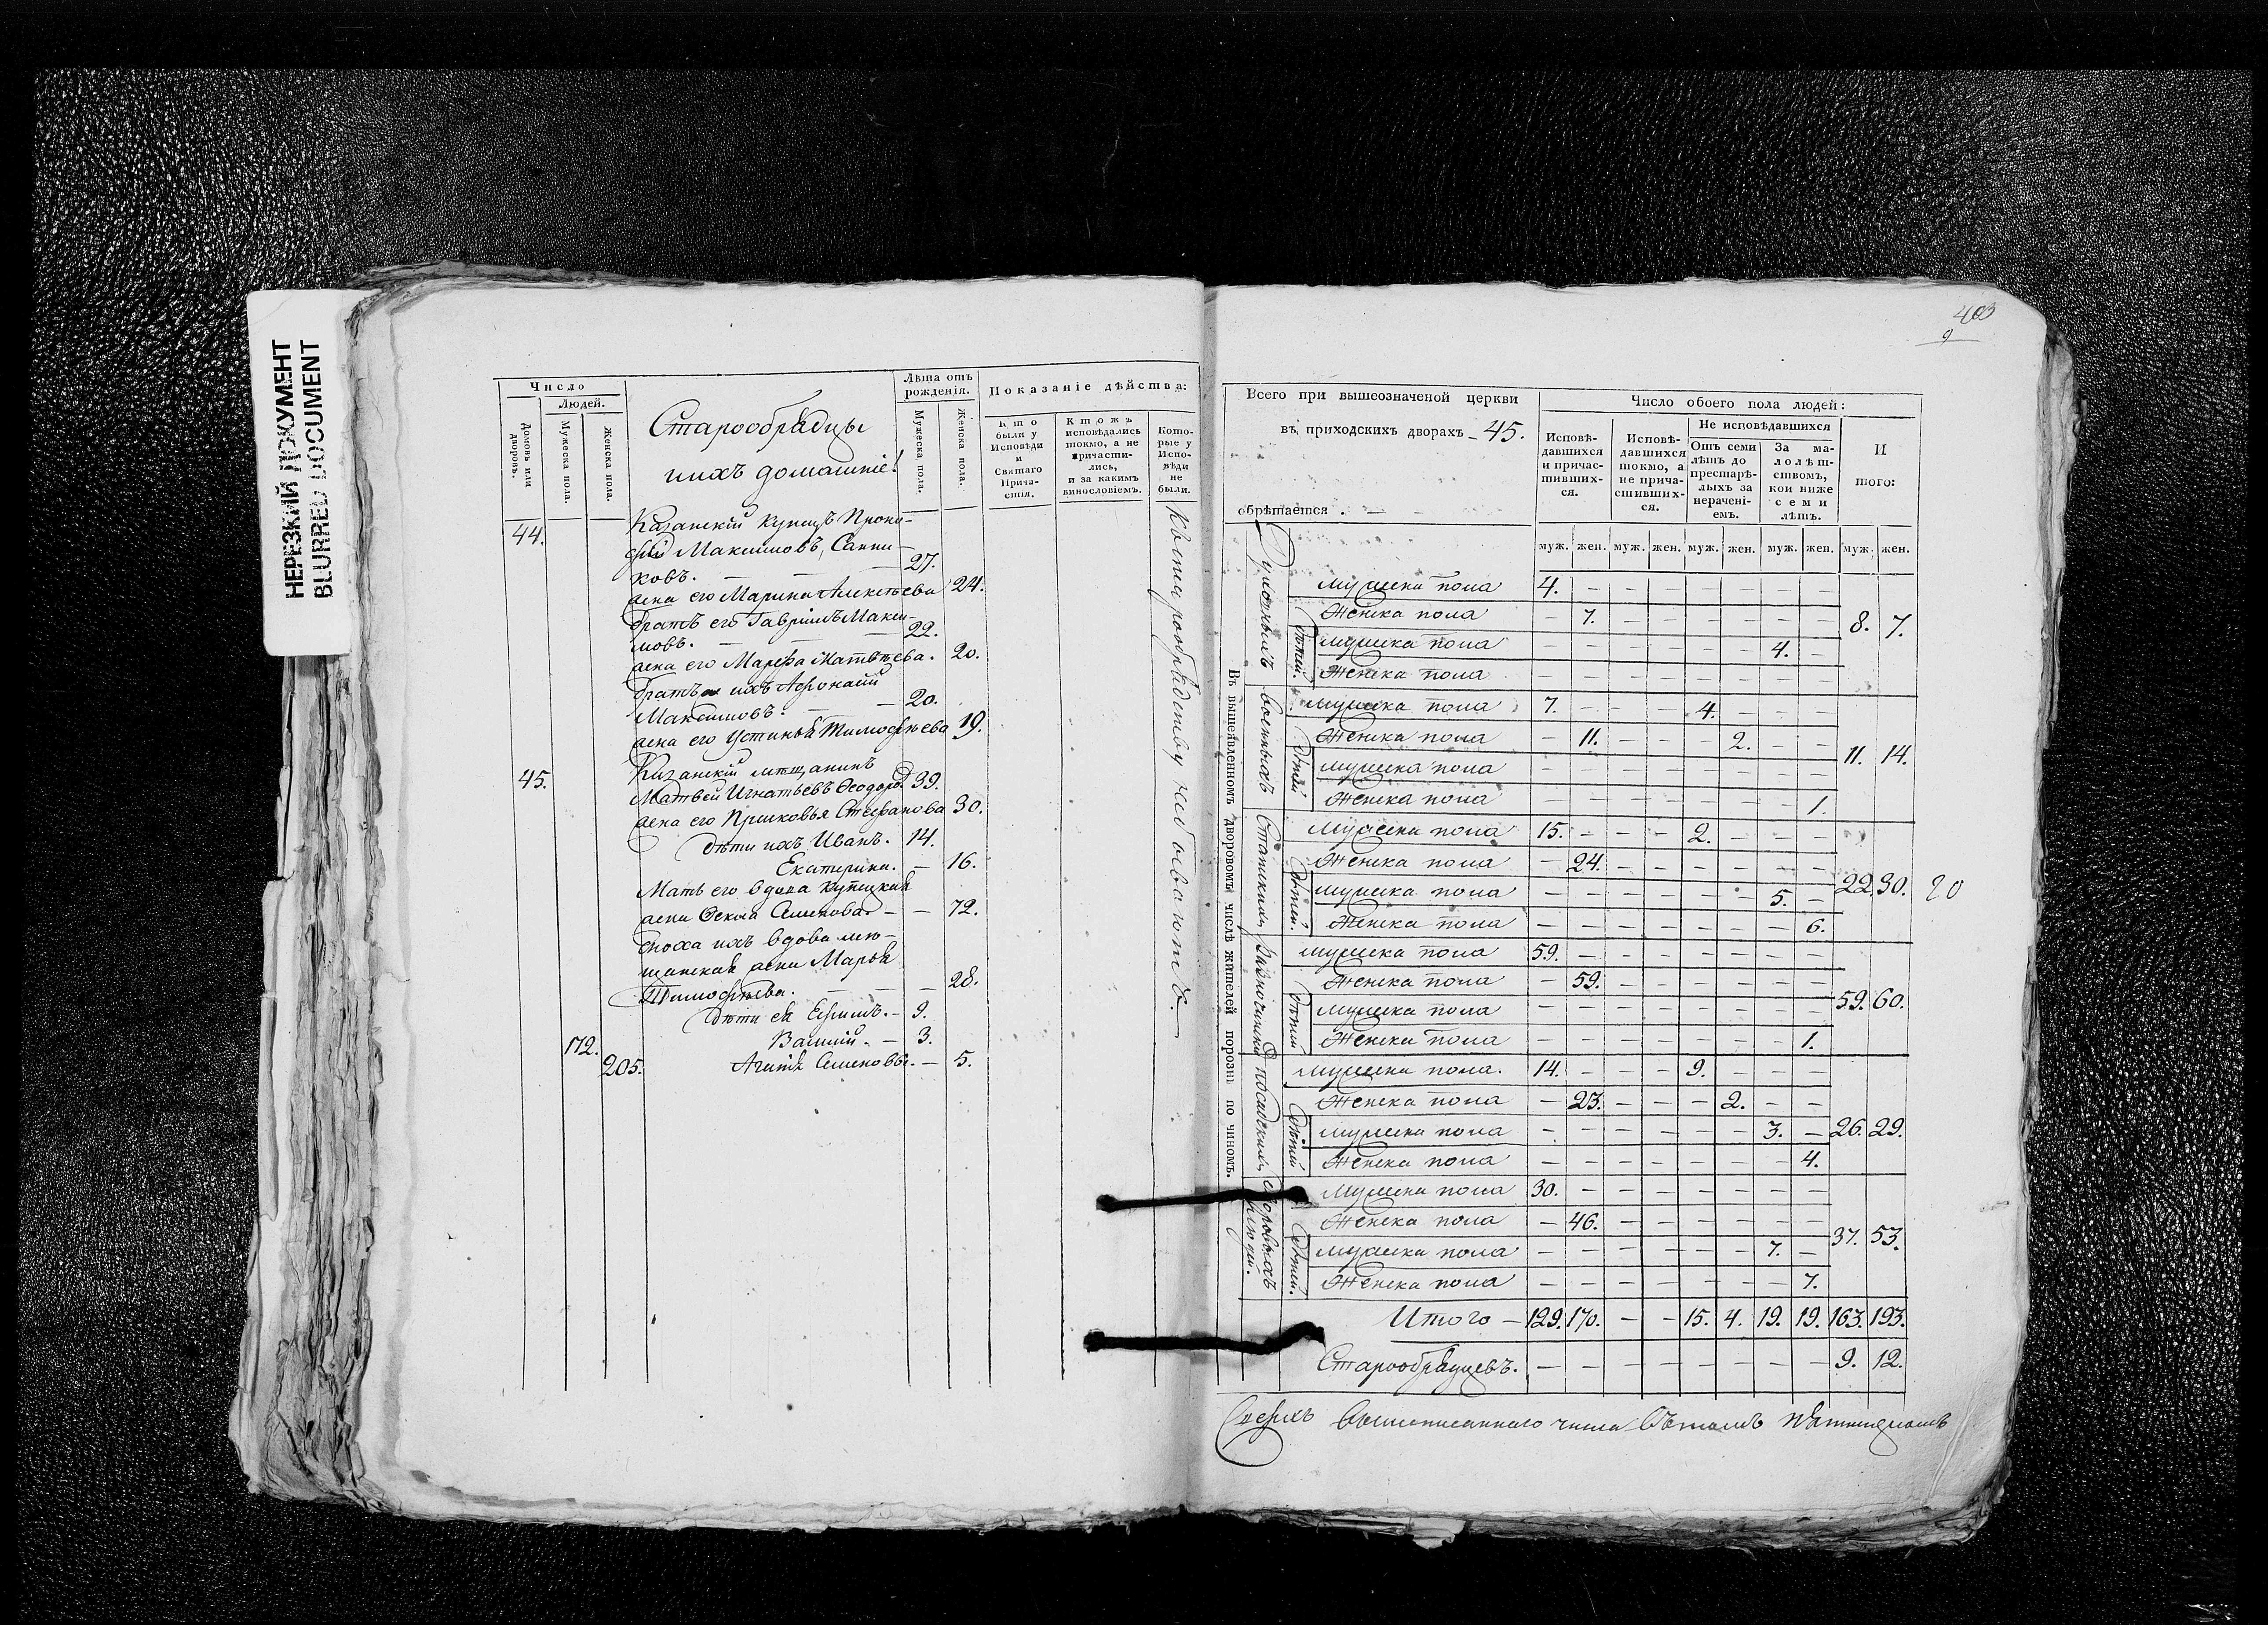 НЕРЕЗКИЙ ДОКУМЕНТ
BLURRED DOCUMENT
Число
Людей.
Домовъ или дворовъ.
Мужеска пола.
Женска пола.
Старообрядцы
и ихъ домашніе!
Лѣта отъ рожденія.
Мужеска пола.
Женска пола.
Показаніе дѣйства:
Кто были у Исповѣди и Святаго Прича-стія.
Ктожъ исповѣдались токмо, а не причасти-лись, и за какимъ винословіемъ.
Кото-рые у Испо-вѣди не были.
44. Казанскій купецъ Проко-
фій Максимовъ, Санни-
ковъ. — — — 27.
жена его Марина Алексѣева 24.
братъ его Гавріилъ Макси-
мовъ. — — 22.
жена его Марѳа Матвѣева. 20.
братъ ихъ Афонасій
Максимовъ. — — 20.
жена его Устинья Тимофѣева 19.
45. Казанскій мѣщанинъ
Матвей Игнатьевъ Ѳеодоро 39.
жена его Присковья Стефанова 30.
дѣти ихъ Иванъ. 14.
Екатерина. — 16.
Мать его вдова купецкая
жена Ѳекла Семенова — — 72.
сноха ихъ вдова мѣ-
щанская жена Марья
Тимофѣева. — — — 28.
дѣти ея Ефимъ. — 9.
172. Василій. — 3.
205. Агапія Семеновы. — 5.
по старообрядству не бываютъ.
403
9
Всего при вышеозначеной церкви
въ приходскихъ дворахъ — 45.
обрѣтается . —
Число обоего пола людей:
Исповѣ-давшихся и причас-тивших-ся.
Исповѣ-давшихся токмо, а не прича-стивших-ся.
Не исповѣдавшихся
Отъ семи лѣтъ до престарѣ-лыхъ за нерачені-емъ.
За ма-лолѣт-ствомъ, кои ниже семи лѣтъ.
И того:
муж. жен. муж. жен. муж. жен. муж. жен. муж. жен.
Въ вышеявленномъ дворовомъ числѣ жителей порознь по чиномъ.
Духовныхъ
мужеска пола 4. — — — — — — —
Женска пола — 7. — — — — — — 8. 7.
дѣтей.
мужеска пола — — — — — — 4. —
Женска пола — — — — — — — —
военныхъ
мужеска пола 7. — — — 4. — — —
Женска пола — 11. — — — 2. — — 11. 14.
дѣтей
мужеска пола — — — — — — — —
Женска пола — — — — — — — 1.
Статскихъ
мужеска пола 15. — — — 2. — — —
Женска пола — 24. — — — — — — 22. 30. 20
дѣтей.
мужеска пола — — — — — — 5. —
Женска пола — — — — — — — 6.
Разночинск
мужеска пола 59. — — — — — — —
Женска пола — 59. — — — — — — 59. 60.
дѣтей
мужеска пола — — — — — — — —
Женска пола — — — — — — — 1.
посадских
мужеска пола. 14. — — — 9. — — —
Женска пола — 23. — — — 2. — —
дѣтей
мужеска пола — — — — — — 3. — 26. 29.
Женска пола — — — — — — — 4.
дворовыхъ людей.
мужеска пола 30. — — — — — — —
Женска пола — 46. — — — — — — 37. 53.
дѣтей.
мужеска пола — — — — — — 7. —
Женска пола — — — — — — — 7.
Итого — 129. 170. — — 15. 4. 19. 19. 163. 193.
Старообрядцевъ. — — — — — — — — 9. 12.
вышеписаннаго числа